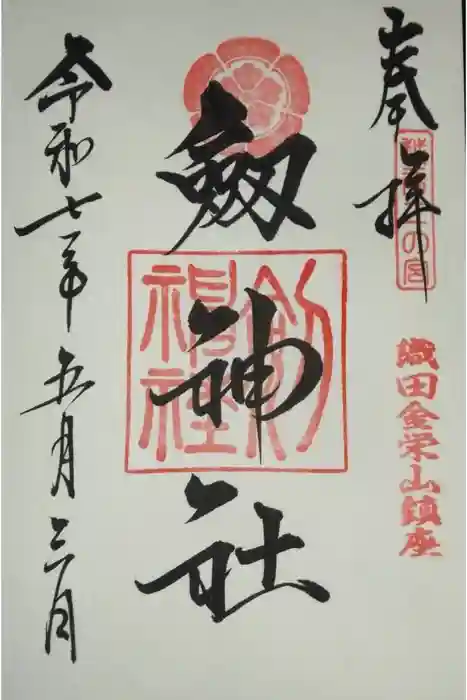 奉拝
越前二の宮
織田金栄山鎮座
劔神社
劍神社
令和七年五月三日